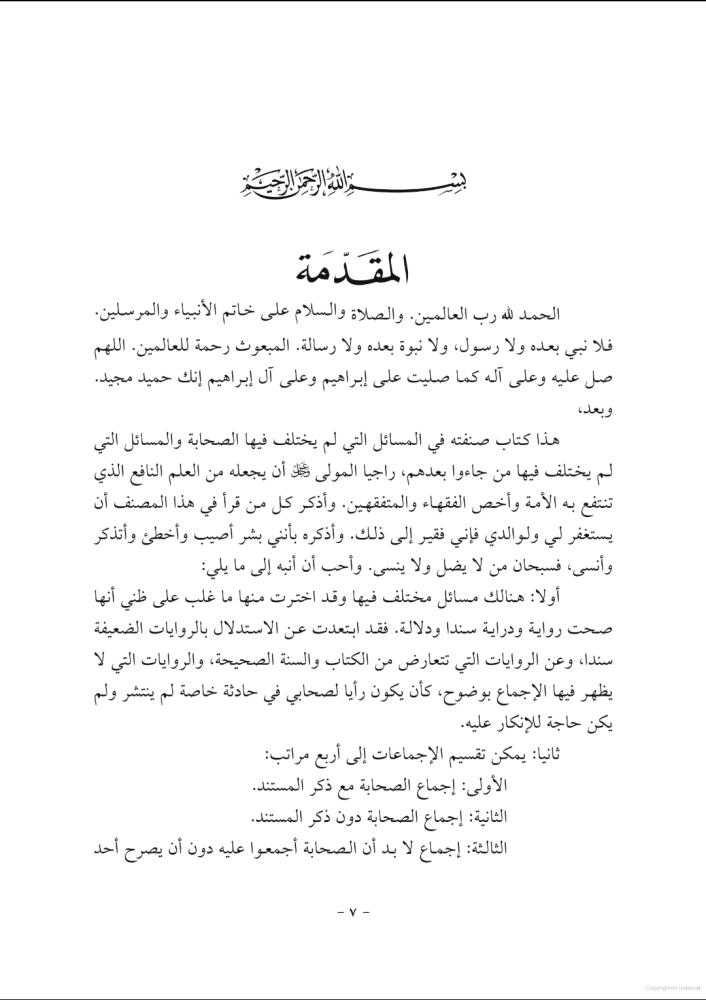 بسم الله الرحمن الرحيم
المقَدّمَة
الحمد لله رب العالمين. والصلاة والسلام على خاتم الأنبياء والمرسلين.
فلا نبي بعده ولا رسول، ولا نبوة بعده ولا رسالة. المبعوث رحمة للعالمين. اللهم
صل عليه وعلى آله كما صليت على إبراهيم وعلى آل إبراهيم إنك حميد مجيد.
وبعد،
هذا كتاب صنفته في المسائل التي لم يختلف فيها الصحابة والمسائل التي
لم يختلف فيها من جاءوا بعدهم، راجيا المولى ﷻ أن يجعله من العلم النافع الذي
تنتفع به الأمة وأخص الفقهاء والمتفقهين. وأذكر كل من قرأ في هذا المصنف أن
يستغفر لي ولوالدي فإني فقير إلى ذلك. وأذكره بأنني بشر أصيب وأخطئ وأتذكر
وأنسى، فسبحان من لا يضل ولا ينسى. وأحب أن أنبه إلى ما يلي:
أولا: هنالك مسائل مختلف فيها وقد اخترت منها ما غلب على ظني أنها
صحت رواية ودراية سندا ودلالة. فقد ابتعدت عن الاستدلال بالروايات الضعيفة
سندا، وعن الروايات التي تتعارض من الكتاب والسنة الصحيحة، والروايات التي لا
يظهر فيها الإجماع بوضوح، كأن يكون رأيا لصحابي في حادثة خاصة لم ينتشر ولم
يكن حاجة للإنكار عليه.
ثانيا: يمكن تقسيم الإجماعات إلى أربع مراتب:
الأولى: إجماع الصحابة مع ذكر المستند.
الثانية: إجماع الصحابة دون ذكر المستند.
الثالثة: إجماع لا بد أن الصحابة أجمعوا عليه دون أن يصرح أحد
- ٧ -
Copyrighted material